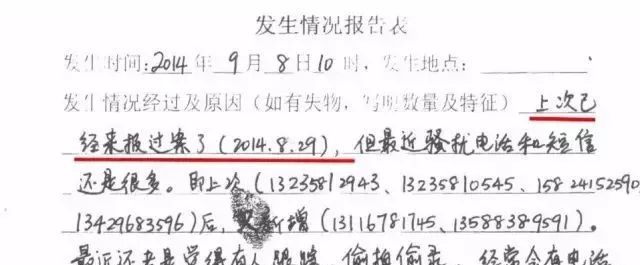 发生情况报告表
发生时间:2014年9月8日10时,发生地点:
发生情况经过及原因(如有失物,写明数量及特征)上次已
经来报过案了(2014.8.29),但最近骚扰电话和短信
还是很多。即上次(13235812943、13235810545、15824152590、
13429683596)后,又新增(13116781745、13588389591)。
最近还老是觉得有人跟踪、偷拍偷录。经常会有电话